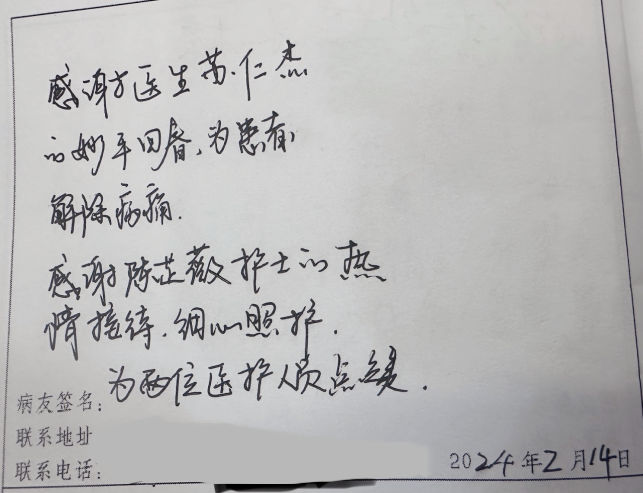 感谢方医生苏仁杰
的妙手回春,为患者
解除病痛.
感谢陈芷薇护士的热
情接待.细心照护.
为两位医护人员点赞.
病友签名:
联系地址
联系电话:
2024年2月14日